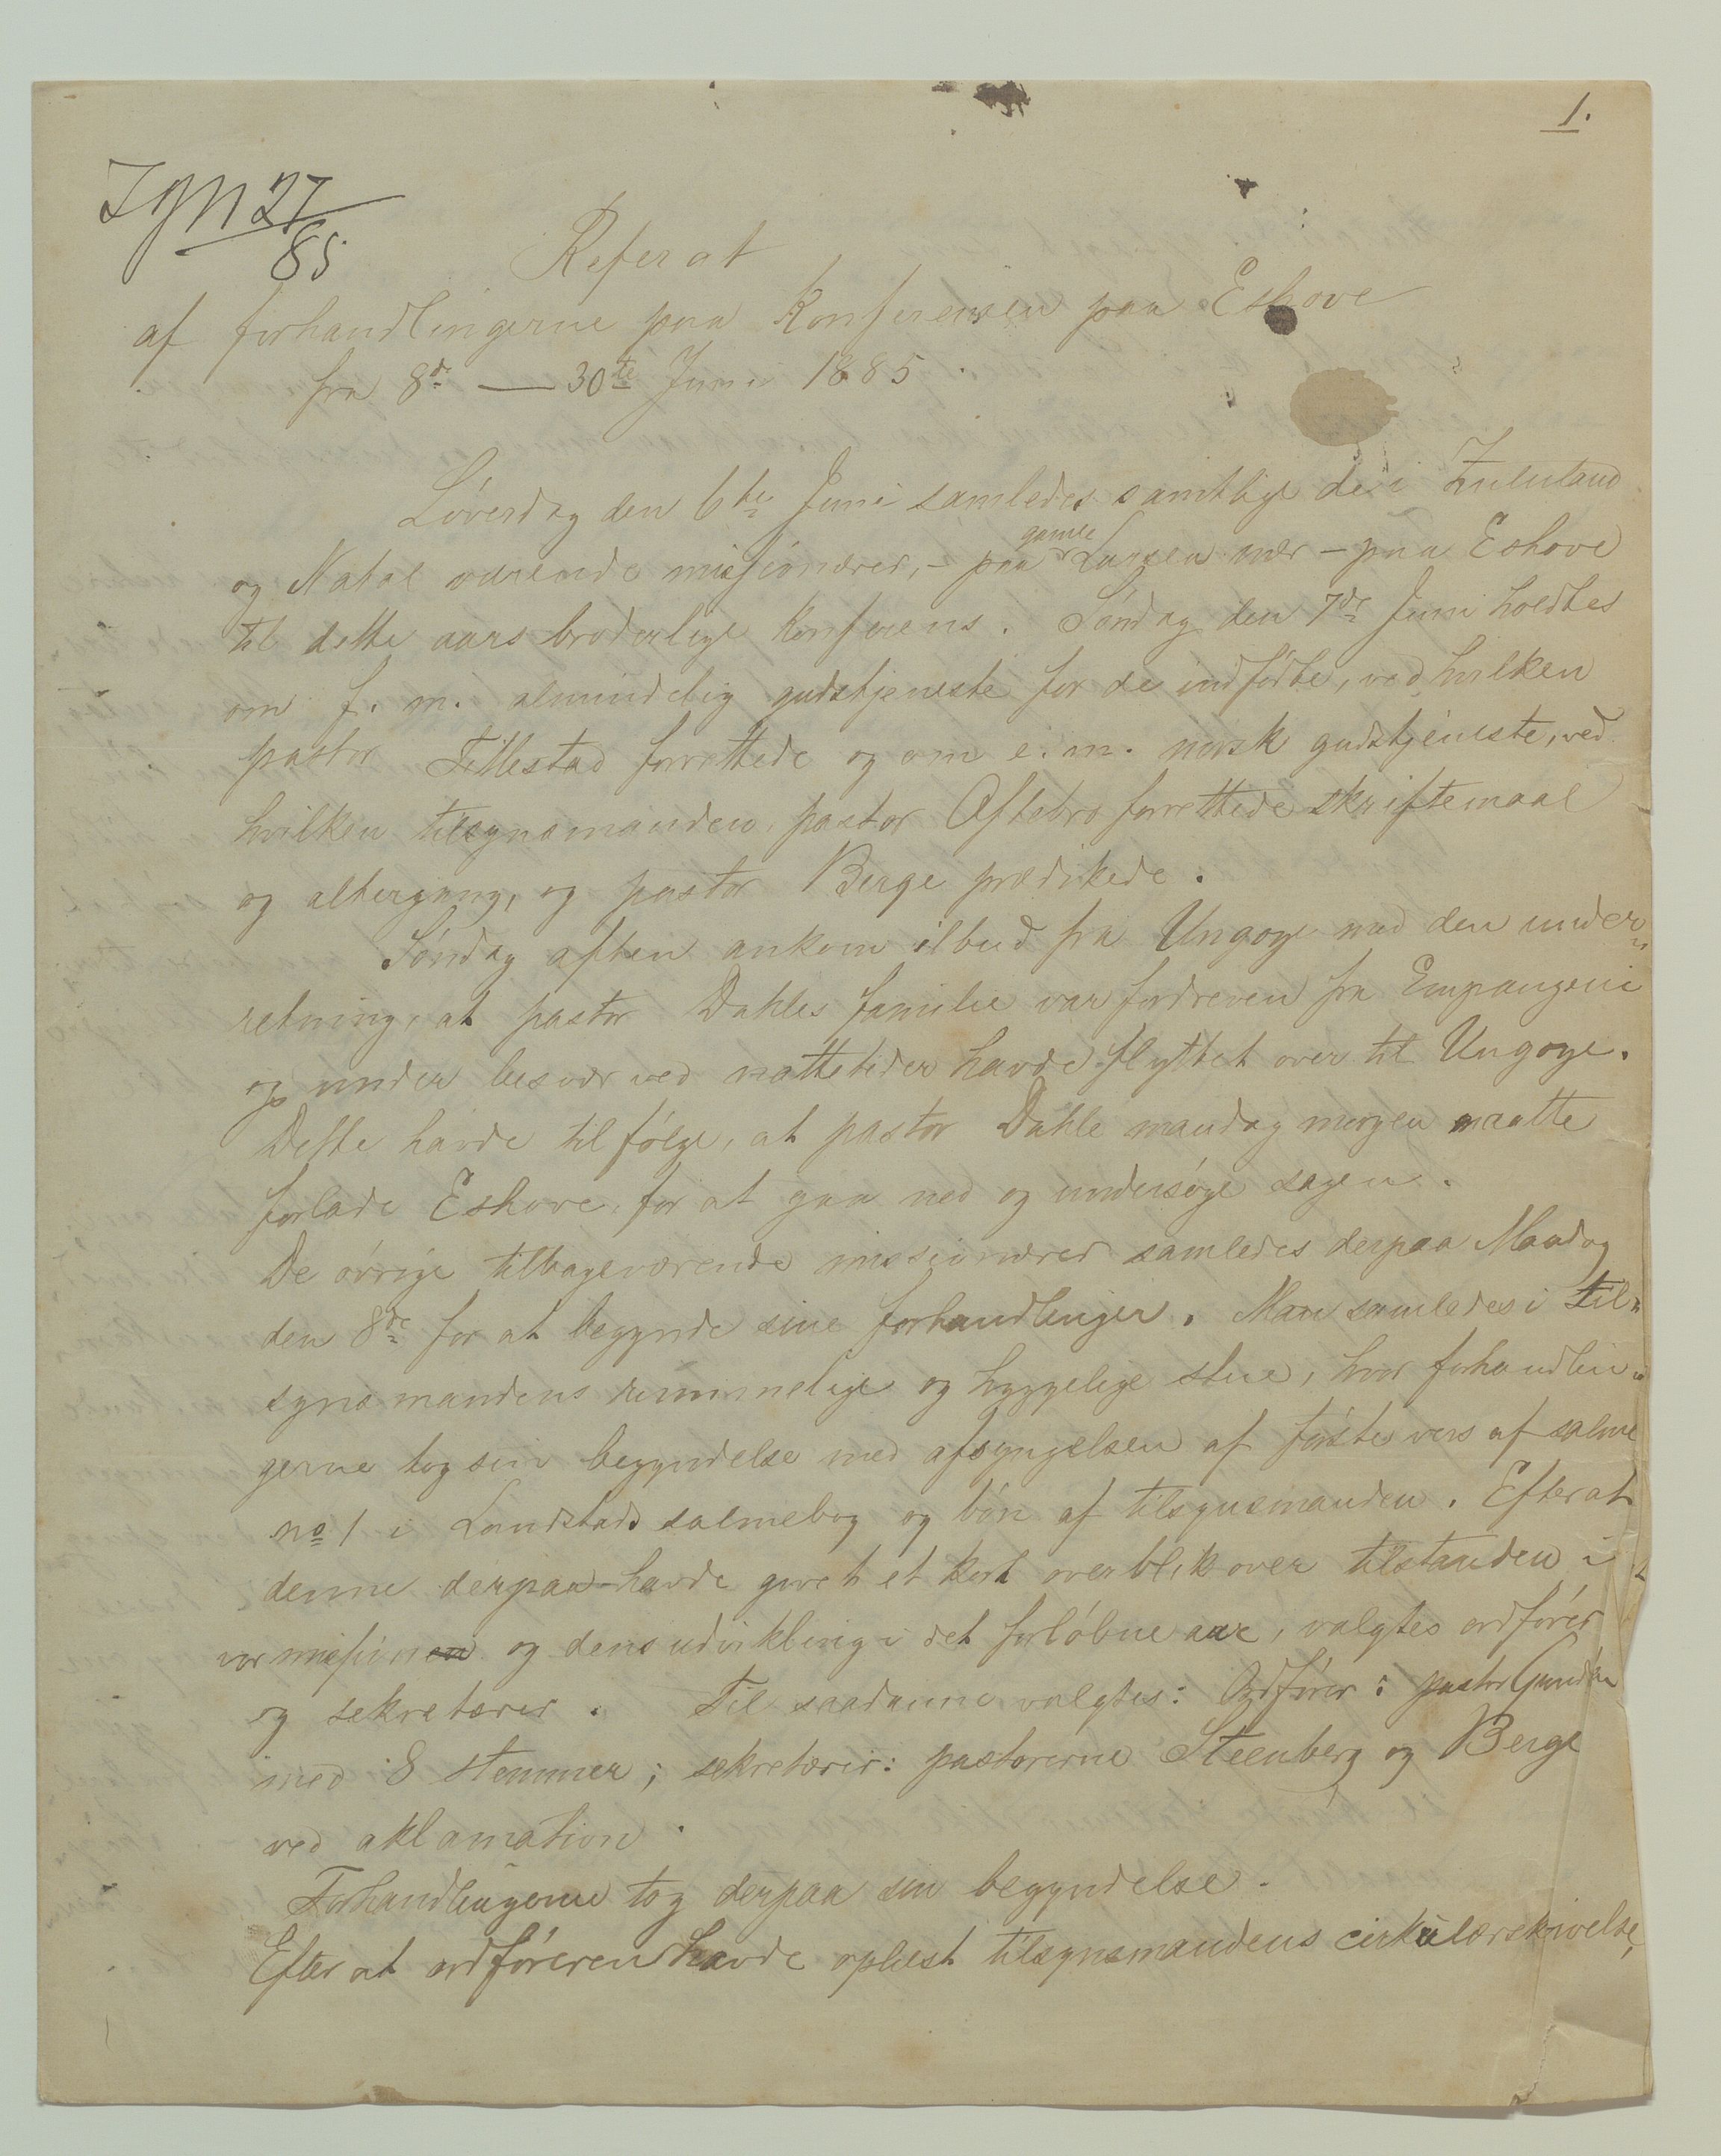 1.
JgN 27
85
Referat
af forhandlingerne paa Konferensen paa Eshove
fra 8de — 30te Juni 1885.
Löverdag den 6te Juni samledes samtlige de i Zululand
og Natal værende missionærer, – paa gamle Larsen nær – paa Eshove
til dette aars broderlige Konferens. Söndag den 7de Juni holdtes
om f. m. almindelig gudstjeneste for de indfödte, ved hvilken
pastor Titlestad forrettede og om e. m. norsk gudstjeneste, ved
hvilken tilsynsmanden, pastor Oftebro forrettede skriftemaal
og altergang, og pastor Berge prædikede.
Söndag aften ankom ilbud fra Ungoye med den under-
retning, at pastor Dahles familie var fordreven fra Empangeni
og under besvær ved nattetider havde flyttet over til Ungoye.
Dette havde til fölge, at pastor Dahle mandag morgen maatte
forlade Eshove, for at gaa ned og undersöge sagen.
De övrige tilbageværende missionærer samledes derpaa Mandag
den 8de for at begynde sine forhandlinger. Man samledes i til-
synsmandens rummelige og hyggelige stue, hvor forhandlin-
gerne tog sin begyndelse med afsyngelsen af förste vers af salme
no 1 i Landstads salmebog og bön af tilsynsmanden. Efterat
denne derpaa havde givet et kort overblik over tilstanden i
vor mission og dens udvikling i det forlöbne aar, valgtes ordförer
og sekretærer. Til saadanne valgtes: Ordförer: pastor Gundersen
med 8 stemmer; sekretærer: pastorerne Steenberg og Berge
ved aklamation.
Forhandlingerne tog derpaa sin begyndelse.
Efter at ordföreren havde oplæst tilsynsmandens cirkulærskrivelse,